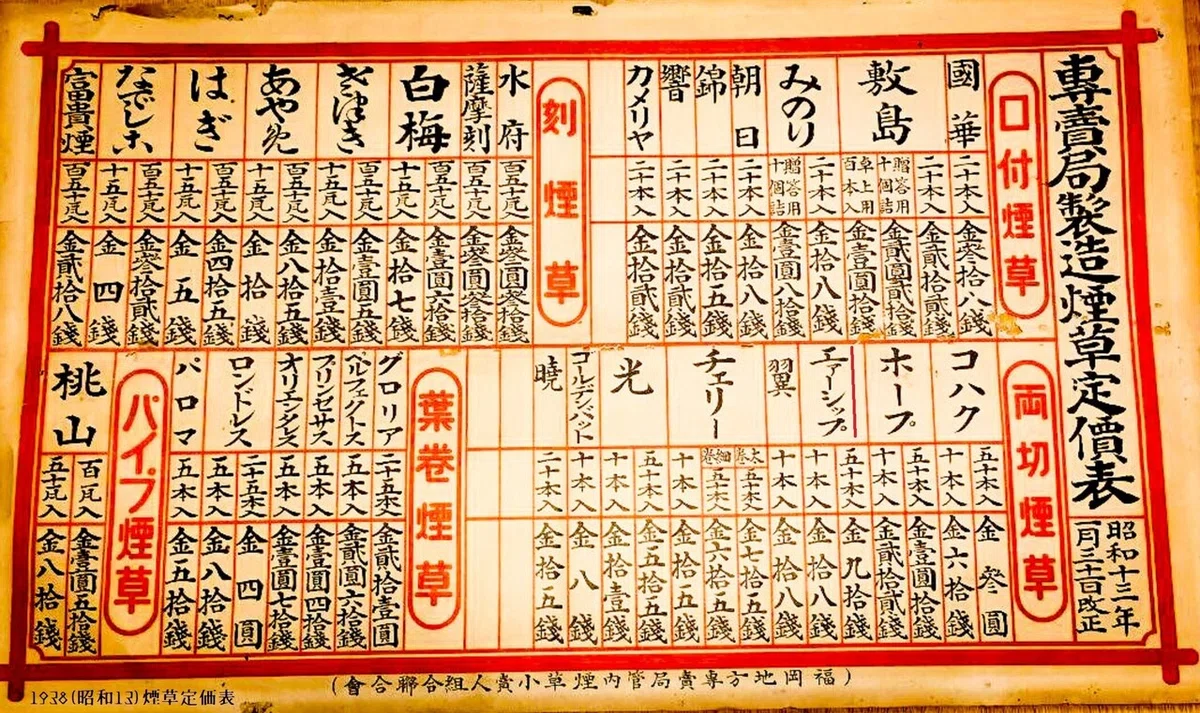 專賣局製造煙草定價表
昭和十三年
一月三十一日改正
口付煙草
國華
二十本入
金參拾八錢
敷島
二十本入
金貳拾貳錢
贈答用
十個詰
金貳圓貳拾錢
卓上用
百本入
金壹圓拾錢
みのり
二十本入
金拾八錢
贈答用
十個詰
金壹圓八拾錢
朝日
二十本入
金拾八錢
錦
二十本入
金拾五錢
響
二十本入
金拾貳錢
カメリヤ
二十本入
金拾貳錢
刻煙草
水府
百五十瓦入
金參圓參拾錢
薩摩刻
百五十瓦入
金參圓參拾錢
白梅
百五十瓦入
金壹圓六拾錢
十五瓦入
金拾七錢
さつき
百五十瓦入
金壹圓五錢
十五瓦入
金拾壹錢
あやめ
百五十瓦入
金八拾五錢
十五瓦入
金拾錢
はぎ
百五十瓦入
金四拾五錢
十五瓦入
金五錢
なでしこ
百五十瓦入
金參拾貳錢
十五瓦入
金四錢
富貴煙
百五十瓦入
金貳拾八錢
両切煙草
コハク
五十本入
金參圓
十本入
金六拾錢
ホープ
五十本入
金壹圓拾錢
十本入
金貳拾貳錢
エアーシップ
五十本入
金九拾錢
十本入
金拾八錢
翼
十本入
金拾八錢
チェリー
太巻
五十本入
金七拾五錢
細巻
五十本入
金六拾五錢
十本入
金拾五錢
光
五十本入
金五拾五錢
十本入
金拾壹錢
ゴールデンバット
十本入
金八錢
暁
二十本入
金拾五錢
葉巻煙草
グロリア
二十五本入
金貳拾壹圓
ペルフェクトス
五本入
金貳圓六拾錢
プリンセサス
五本入
金壹圓四拾錢
オリエンタレス
五本入
金壹圓七拾錢
ロンドレス
二十五本入
金四圓
五本入
金八拾錢
パロマ
五本入
金五拾錢
パイプ煙草
桃山
百瓦入
金壹圓五拾錢
五十瓦入
金八拾錢
(福岡地方專賣局管内煙草小賣人組合聯合會)
1938(昭和13)煙草定価表